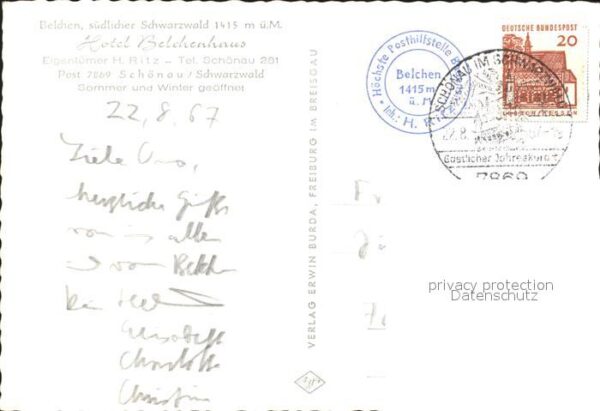 Belchen, südlicher Schwarzwald 1415 m ü.M.
Hotel Belchenhaus
Eigentümer H. Ritz - Tel. Schönau 281
Post 7869 Schönau / Schwarzwald
Sommer und Winter geöffnet
22.8.67
Liebe
herzliche Grüße
von uns allen
und vom
Elisabeth
Charlotte
Christine
VERLAG ERWIN BURDA, FREIBURG IM BREISGAU
Höchste Posthilfsstelle
Belchen
1415 m
ü. M.
Inh: H. Ritz
SCHÖNAU IM SCHWARZWALD
22.8.
Gastlicher Jahreskurort
7869
DEUTSCHE BUNDESPOST
20
LORSCH/HESSEN
privacy protection
Datenschutz